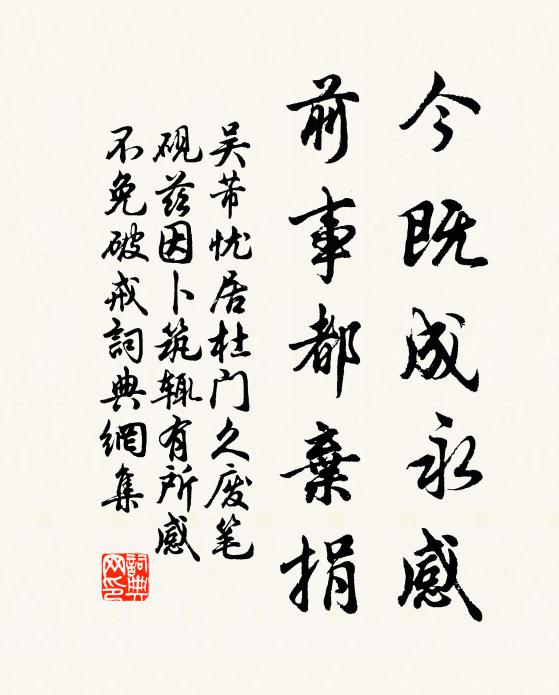 今既成永感
前事都棄捐
吴芾忧居杜门久废笔
砚兹因卜筑辄有所感
不免破戒詞典網集
詞典
网印